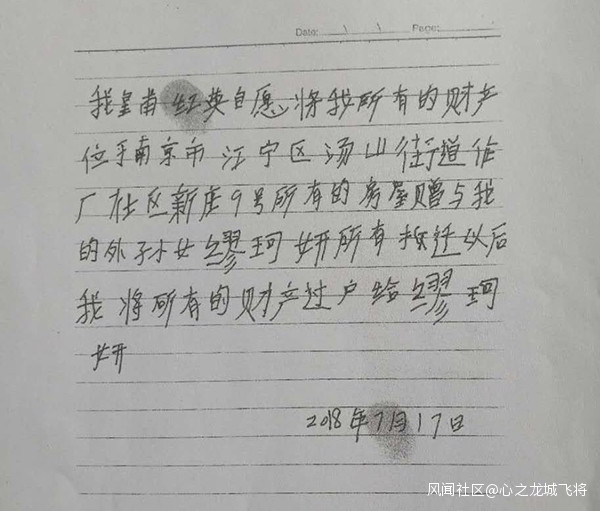 Date: \ \ Page:
我皇甫红英自愿、将我所有的财产
位于南京市江宁区汤山街道作
厂社区新庄9号所有的房屋赠与我
的外孙女缪珂妍所有拆迁以后
我将所有的财产过户给缪珂
妍
2018年7月17日
风闻社区@心之龙城飞将